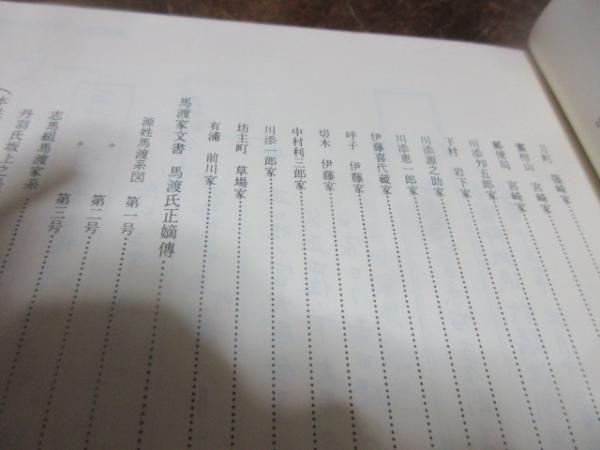 刀町 篠崎家
蜜柑山 宮崎家
郵便局 宮崎家
川添知五郎家
下村 岩下家
川添源之助家
川添恵一郎家
伊藤喜代蔵家
呼子 伊藤家
切木 伊藤家
中村利三郎家
川添一郎家
坊主町 草場家
有浦 前川家
馬渡家文書 馬渡氏正嫡傳
源姓馬渡系図 第一号
〃 第二号
〃 第三号
志馬組馬渡家系
丹羽氏坂上之系